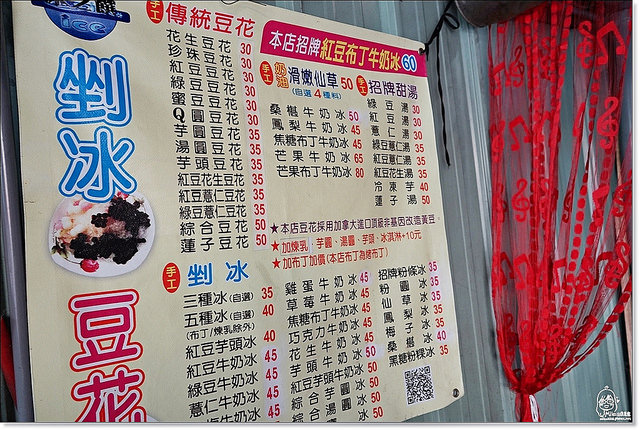 ice
剉冰
豆花
手工 傳統豆花
花生豆花 30
珍珠豆花 30
紅豆豆花 30
綠豆豆花 30
蜜豆豆花 30
Q圓豆花 30
芋圓豆花 35
湯圓豆花 35
芋頭豆花 35
紅豆花生豆花 35
紅豆薏仁豆花 35
綠豆薏仁豆花 35
綜合豆花 50
蓮子豆花 50
本店招牌紅豆布丁牛奶冰 60
手工 奶油 滑嫩仙草 50
(自選4種料)
桑椹牛奶冰 50
鳳梨牛奶冰 45
焦糖布丁牛奶冰 45
芒果牛奶冰 65
芒果布丁牛奶冰 80
手工 招牌甜湯
綠豆湯 30
紅豆湯 30
薏仁湯 30
綠豆薏仁湯 35
紅豆薏仁湯 35
紅豆花生湯 35
冷凍芋 40
蓮子湯 50
★本店豆花採用加拿大進口頂級非基因改造黃豆
★加煉乳、芋圓、湯圓、芋頭、冰淇淋+10元
★加布丁加價(本店布丁為烤布丁)
手工 剉冰
三種冰(自選) 35
五種冰(自選) 40
(布丁/煉乳除外)
紅豆芋頭冰 40
紅豆牛奶冰 45
綠豆牛奶冰 45
薏仁牛奶冰 45
牛奶冰 45
雞蛋牛奶冰 45
草莓牛奶冰 45
焦糖布丁牛奶冰 45
巧克力牛奶冰 45
花生牛奶冰 45
芋頭牛奶冰 50
紅豆芋頭牛奶冰 50
綜合芋圓冰 50
綜合湯圓冰 50
招牌粉條冰 35
粉圓冰 35
仙草冰 35
鳳梨冰 35
梅子冰 35
桑椹冰 40
黑糖粉粿冰 35